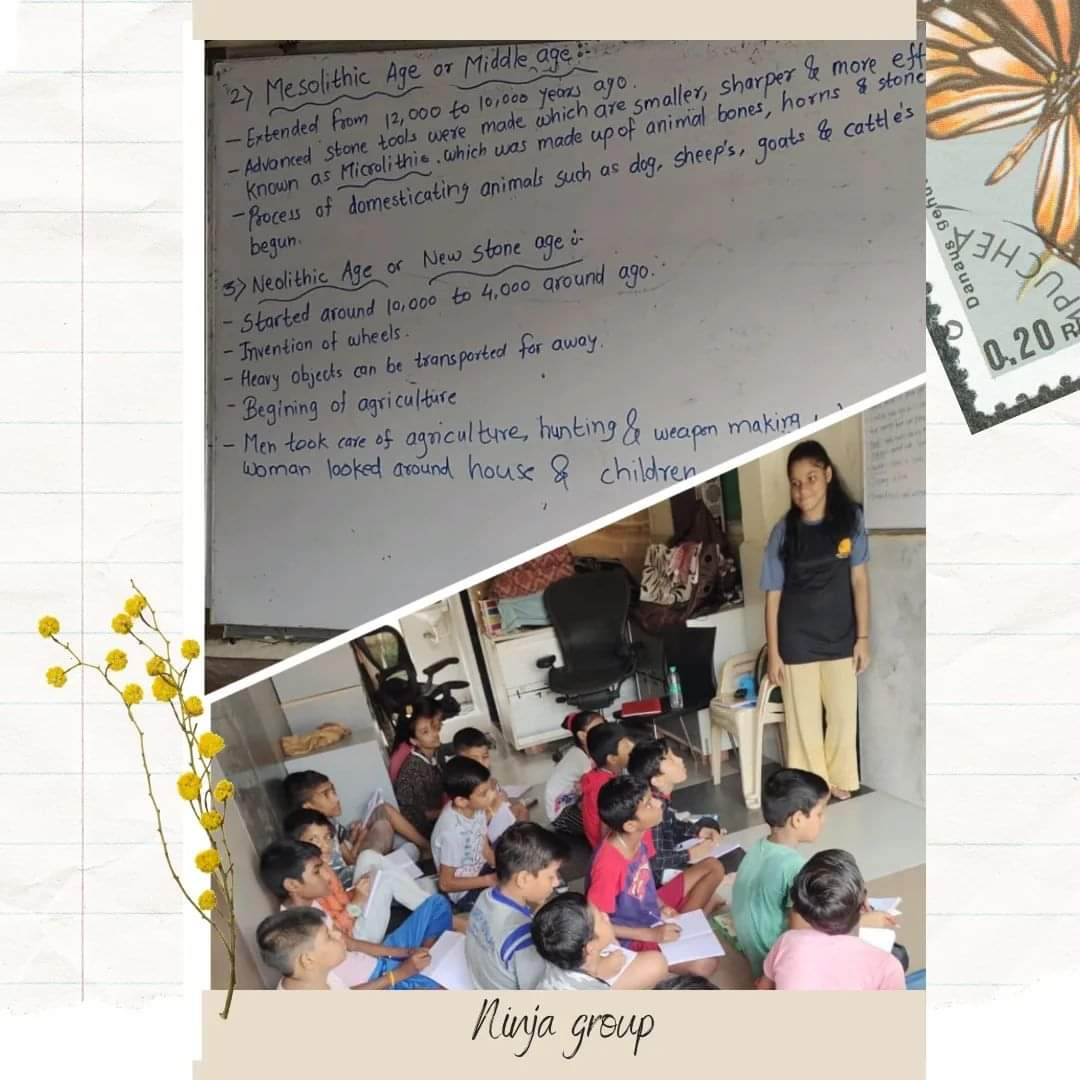 2) Mesolithic Age or Middle age :-
- Extended from 12,000 to 10,000 years ago.
- Advanced stone tools were made which are smaller, sharper & more eff
known as Microlithic. which was made up of animal bones, horns & stone
- Process of domesticating animals such as dog, sheep's, goats & cattle's
begun.
3) Neolithic Age or New Stone age :-
- Started around 10,000 to 4,000 around ago.
- Invention of wheels.
- Heavy objects can be transported for away.
- Begining of agriculture
- Men took care of agriculture, hunting & weapon making,
woman looked around house & children
Danaus
PUCHEA
0.20 R
Ninja group